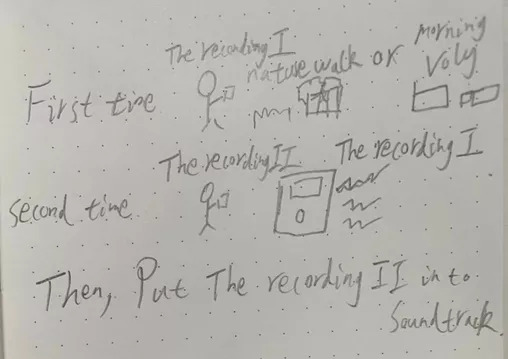 The recording I
nature walk or
Morning
Voly
First time
The recording II
The recording I
second time
Then, Put The recording II in to
Soundtrack